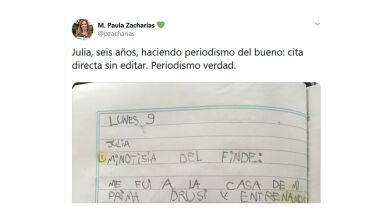 M. Paula Zacharias 💚
@pzacharias
Julia, seis años, haciendo periodismo del bueno: cita
directa sin editar. Periodismo verdad.
LUNES 9
JULIA
MINOTISIA DEL FINDE:
ME FUI A LA CASA DE MI
PRIMA DRUSI Y ENTRENANDO